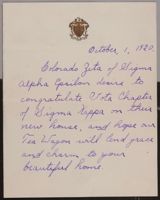 October 1, 1920.
Colorado Zeta of Sigma
Alpha Epsilon desire to
congratulate Iota Chapter
of Sigma Kappa on their
new house, and hope our
Tea Wagon will lend grace
and charm to your
beautiful home.